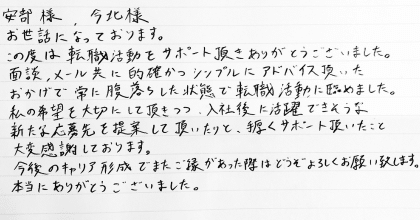 安部様、今北様
お世話になっております。
この度は転職活動をサポート頂きありがとうございました。
面談、メール共に的確かつシンプルにアドバイス頂いた
おかげで常に腹落ちした状態で転職活動に臨めました。
私の希望を大切にして頂きつつ、入社後に活躍できそうな
新たな応募先を提案して頂いたりと、手厚くサポート頂いたこと
大変感謝しております。
今後のキャリア形成でまたご縁があった際はどうぞよろしくお願い致します。
本当にありがとうございました。